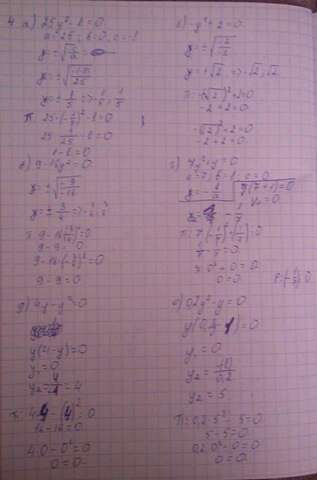 4. а) 25y²-1=0
a=25, b=0, c=-1
y=±√(-c/a)
y=±√(-(-1)/25)
y=±1/5 => -1/5; 1/5
П: 25·(-1/5)²-1=0
25·1/25-1=0
1-1=0
б) -y²+2=0
y=±√(-2/-1)
y=±√2 => -√2; √2
П: -(-√2)²+2=0
-2+2=0
-(√2)²+2=0
-2+2=0
в) 9-16y²=0
y=±√(-9/-16)
y=±3/4 =>
П: 9-16(3/4)²=0
9-9=0
9-16(-3/4)²=0
9-9=0
г) 7y²+y=0
a=7, b=1, c=0
y=-b/a
y(7y+1)=0
y₁=0
-1/7
П: 7(-1/7)²+(-1/7)=0
7·0²-0=0
0=0
д) 4y-y²=0
y(4-y)=0
y₁=0
y₂=4
П: 4·4-(4)²=0
16-16=0
4·0-0²=0
0=0
е) 0,2y²-y=0
y(0,2y-1)=0
y₁=0
y₂=5
П: 0,2·5²-5=0
5-5=0
0,2·0²-0=0
0=0